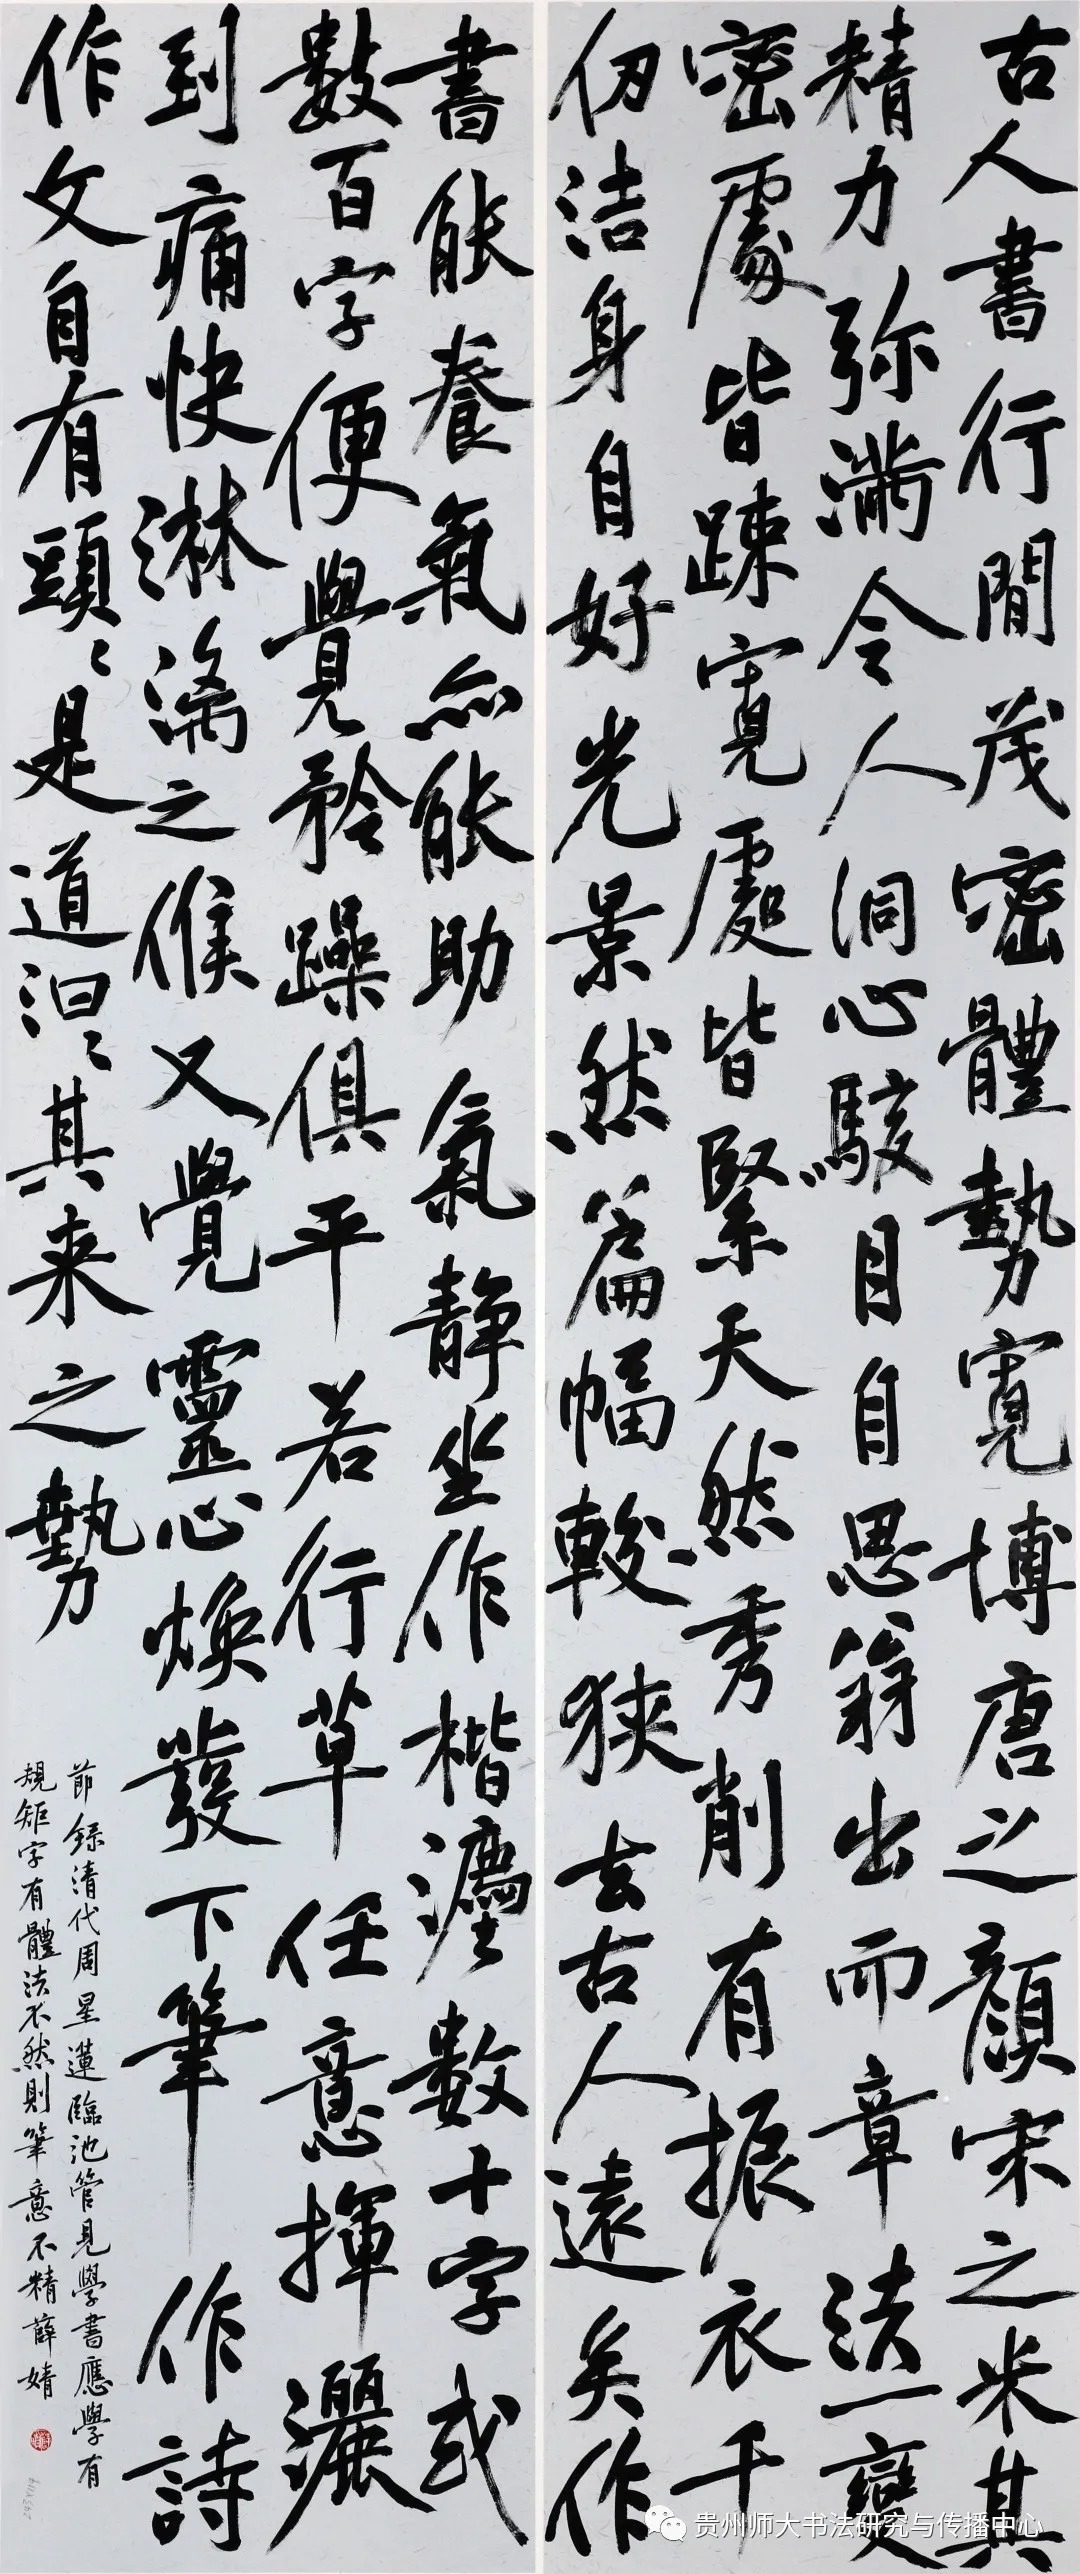 古人書行間茂密體勢寬博唐之顏宋之米其
精力弥满令人洞心駭目自思翁出而章法一變
密處皆疎寬處皆緊天然秀削有振衣千
仞洁身自好光景然篇幅較狹去古人遠矣作
書能養氣亦能助氣静坐作楷灋數十字或
數百字便覺矜躁俱平若行草任意揮灑
到痛快淋漓之候又覺靈心焕發下筆作詩
作文自有頭々是道汩々其来之勢
節録清代周星蓮臨池管見學書應學有
規矩字有體法不然則筆意不精薛婧
贵州师大书法研究与传播中心